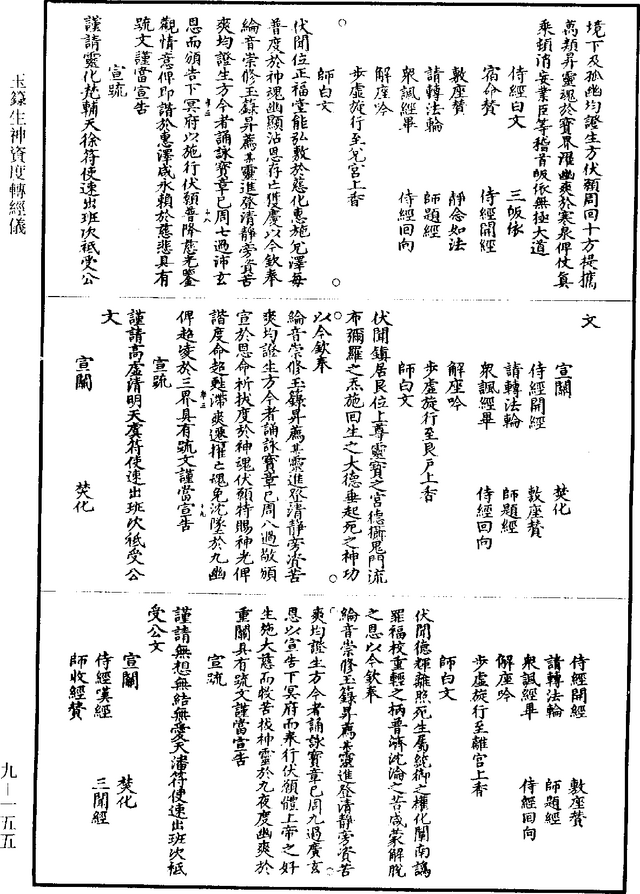 境下及孤幽均證生方伏願周回十方提攜
萬類昇靈魂於寶界濯幽爽於寒泉俾仗真
乘頓消妄業臣等稽首皈依無極大道
侍經白文　三皈依
宿命贊　侍經開經
敷座贊　靜念如法
請轉法輪　師題經
眾諷經畢　侍經回向
解座吟
步虛旋行至兌宮上香
師白文
伏聞位正福堂能弘敷於慈化惠施兌澤每
普度於神魂幽顯沾恩存亡獲慶以今欽奉
綸音崇修玉籙昇薦某靈進登清靜旁資苦
爽均證生方今者誦詠寶章已周七過沛玄
恩而頒告下冥府以施行伏願普降慈光鑒
觀情意俾即諧於惠澤咸永賴於慈悲具有
疏文謹當宣告
宣疏
謹請靈化梵輔天徐符使速出班次祗受公
文
宣關　焚化
侍經開經　敷座贊
請轉法輪　師題經
眾諷經畢　侍經回向
解座吟
步虛旋行至艮戶上香
師白文
伏聞鎮居艮位上尊靈寶之宮德攝鬼門流
布彌羅之炁施回生之大德垂起死之神功
以今欽奉
綸音崇修玉籙昇薦某靈進登清靜旁資苦
爽均證生方今者誦詠寶章已周八過敬頒
宣於恩命祈拔度於神魂伏願特賜神光俾
諧度命超甦滯爽遷權之魂免沈墜於九幽
俾超凌於三界具有疏文謹當宣告
宣疏
謹請高虛清明天虞符使速出班次祗受公
文
宣關　焚化
侍經開經　敷座贊
請轉法輪　師題經
眾諷經畢　侍經回向
解座吟
步虛旋行至離宮上香
師白文
伏聞德輝離照死生屬統御之權化闡南譌
罪福校重輕之柄普濟沈淪之苦咸蒙解脫
之恩以今欽奉
綸音崇修玉籙昇薦某靈進登清靜旁資苦
爽均證生方今者誦詠寶章已周九過廣玄
恩以宣告下冥府而奉行伏願體上帝之好
生施大慈而救苦拔神靈於九夜度幽爽於
重關具有疏文謹當宣告
宣疏
謹請無想無結無愛天潘符使速出班次祗
受公文
宣關　焚化
侍經嘆經　三閉經
師收經贊
玉籙生神資度轉經儀
九—一五五